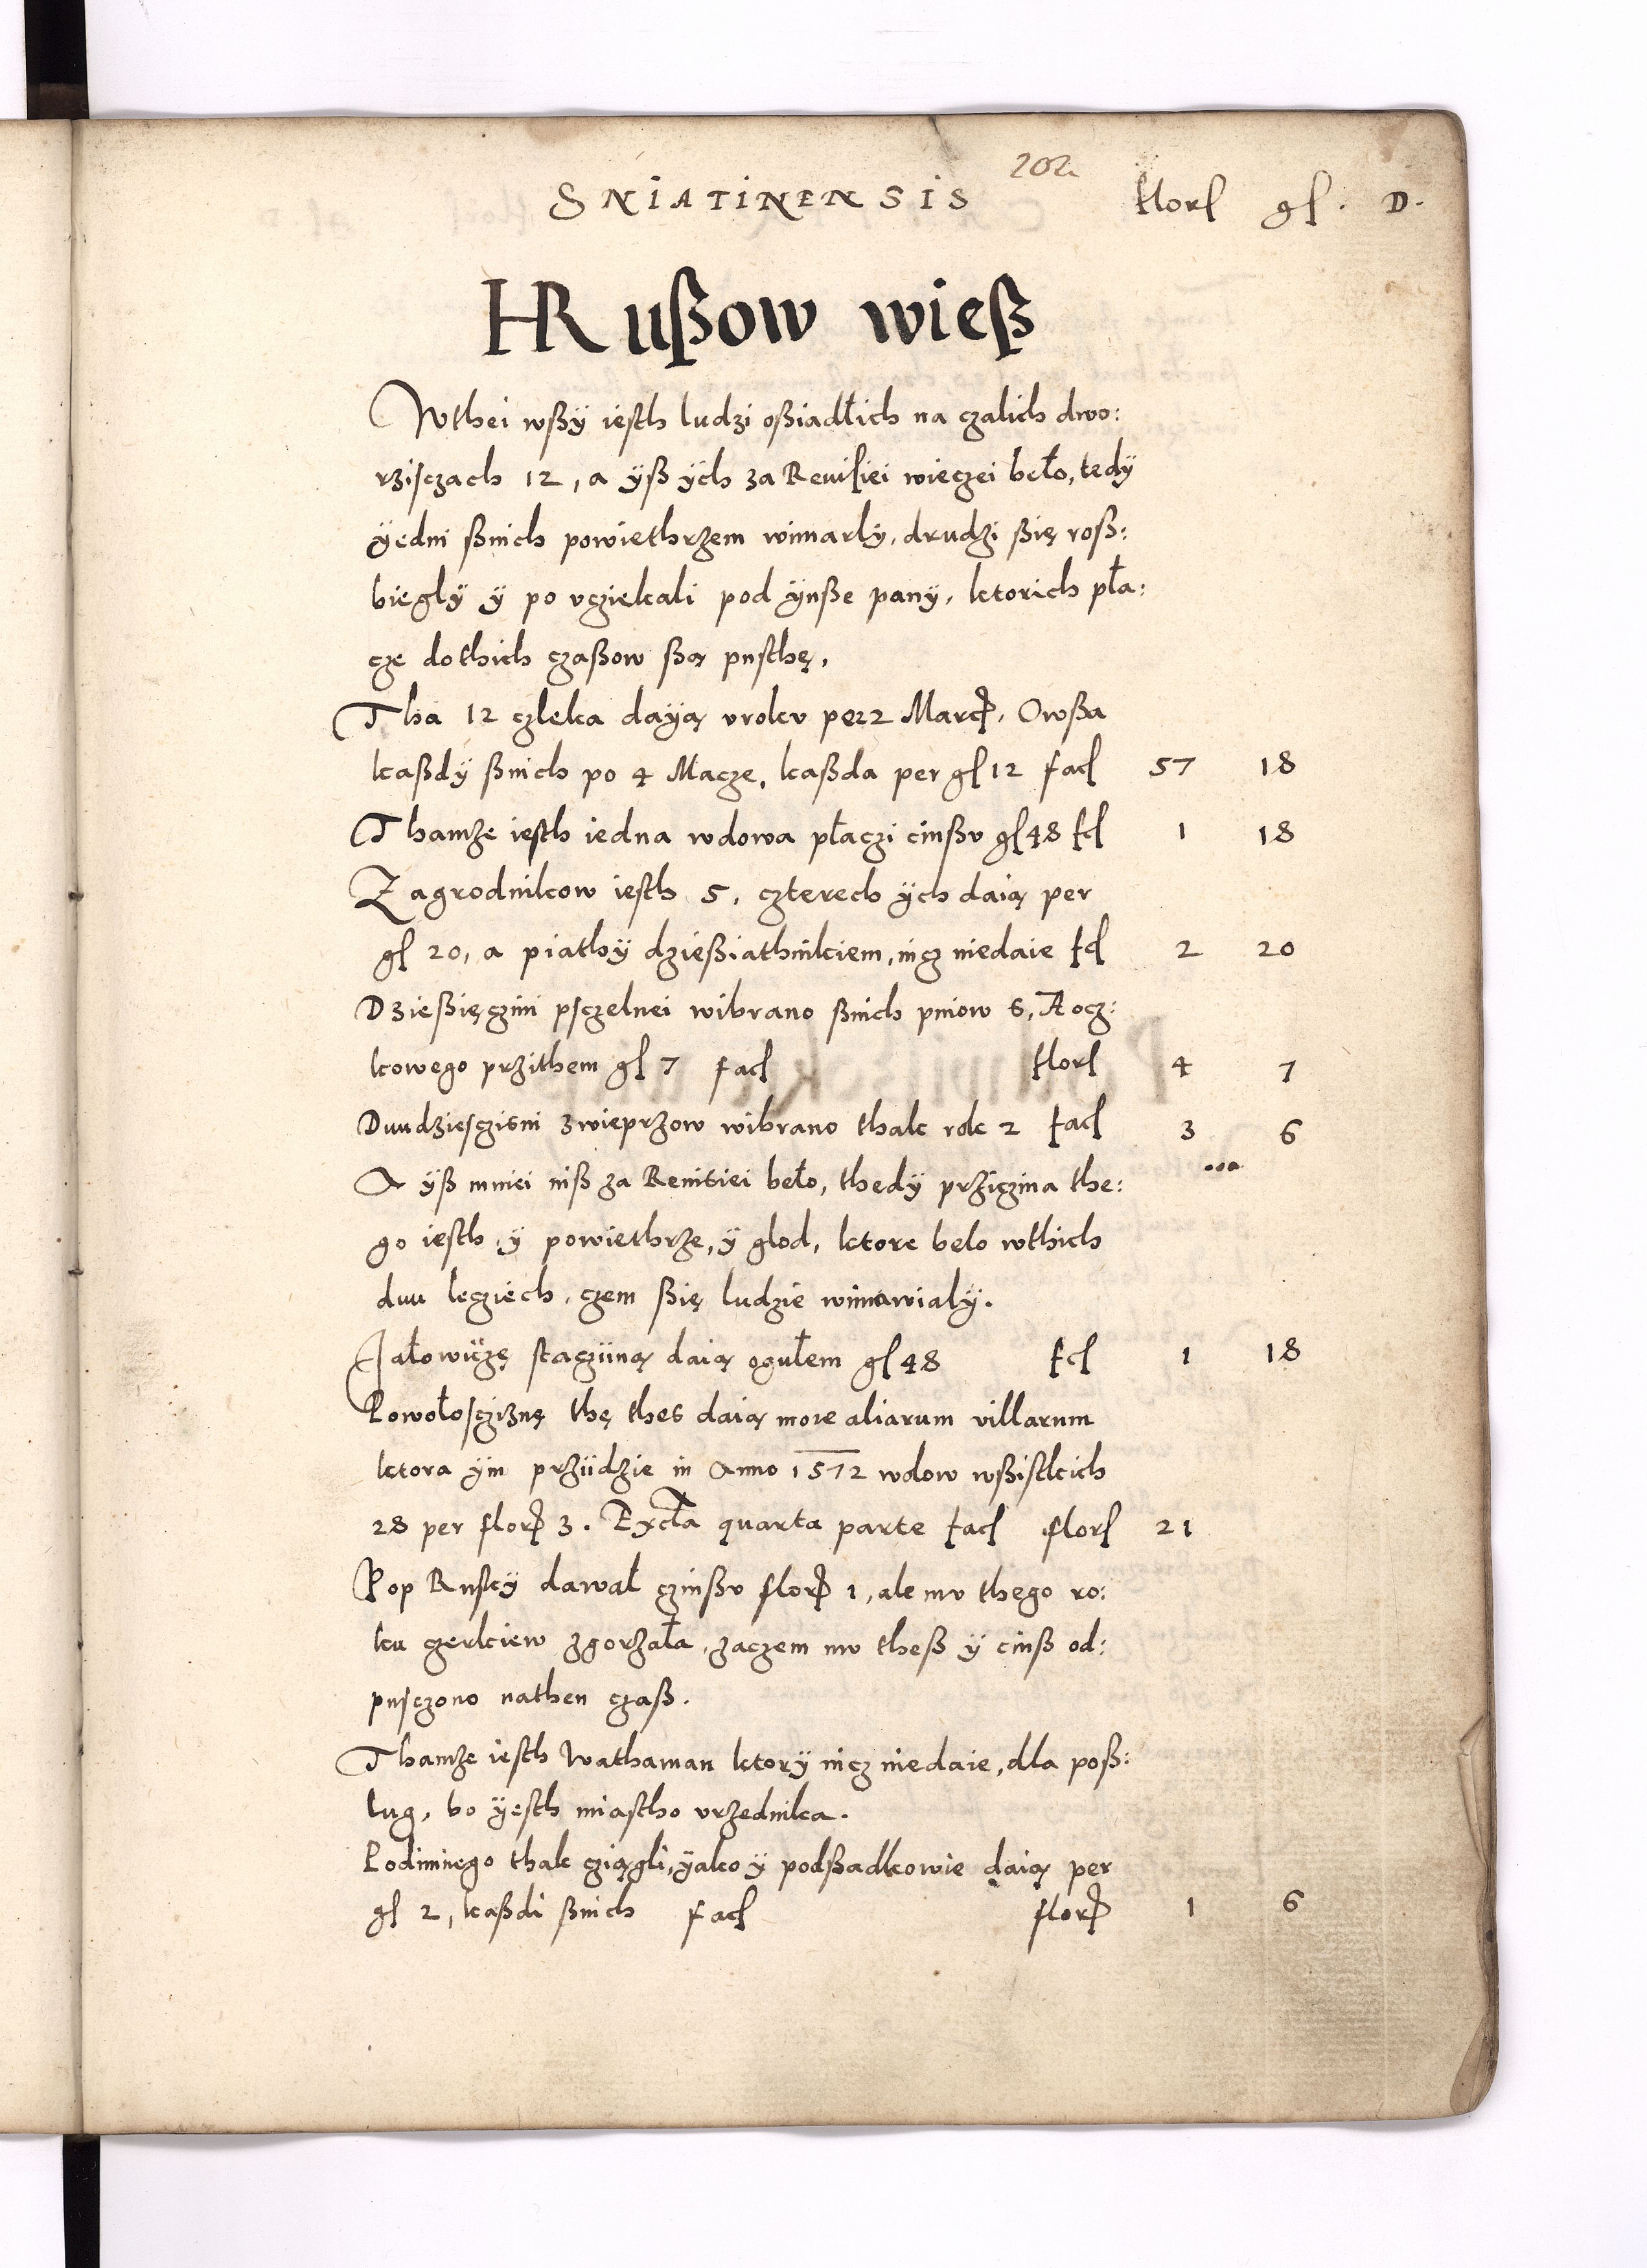 202.
SNIATINENSIS florſ gſ. D.
HRußow wieß
Wthei wßÿ iesth ludzi oßiadłich na czalich dwo:
rziſczach 12, a ÿß ÿch za Reuiſiei wieczei beło, tedÿ
ÿedni ßnich powiethrzem wimarlÿ, drudzi ßię roß:
bieglÿ ÿ po vciekali pod ÿnße panÿ, ktorich pła:
cze dothich czaßow ßą pusthę.
Tha 12 czleka daÿą vrokv per 2 Marcę. Owßa
kaßdÿ ßnich po 4 Macze, kaßda per gſ 12 facſ 57 18
Thamze iesth iedna wdowa płaczi cinßv gſ 48 fcſ 1 18
Zagrodnikow iesth 5, czterech ÿch daią per
gſ 20, a piathÿ dzießiathnikiem, nicz niedaie fcſ 2 20
Dzießięczini pſczelnei wibrano ßnich pniow 6, A ocz:
kowego przithem gſ 7 facſ florſ 4 7
Duudzieſcziɢni zwieprzow wibrano thak rok 2 facſ 3 6
A ÿß mniei niß za Reuiſiei beło, thedÿ przicina the:
go iesth, ÿ powiethrze, ÿ glod, ktore belo wthich
duu lecziech, czem ßię ludzie wimawialÿ.
Jałowiczę staczijną daią ogułem gſ 48 fcſ 1 18
Powołoſcziznę thę thes daią more aliarum villarum
ktora ÿm prziidzie in Anno 1572 wdow wßistkich
28 per flor 3. Excta quarta parte facſ florſ 21
Pop Ruskÿ dawał czinßv flor 1, ale mv thego ro:
ku czerkiew zgorzała, zaczem mv theß ÿ cinß od:
puſczono nathen czaß.
Thamze iesth Wathaman ktorÿ nicz niedaie, dla poß:
lug, bo ÿesth miastho vrzednika.
Podimnego thak cziągli, ÿako ÿ podßadkowie daią per
gſ 2, kaßdi ßnich facſ flor 1 6